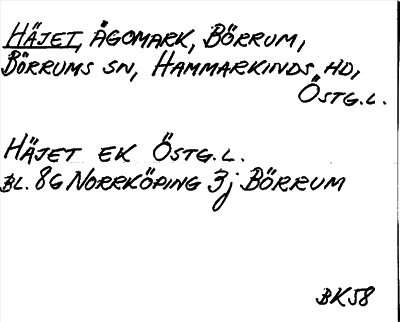 HÄJET, ÄGOMARK, BÖRRUM,
BÖRRUMS SN, HAMMARKINDS HD,
ÖSTG.L.
HÄJET EK ÖSTG.L.
BL. 8G NORRKÖPING 3j BÖRRUM
BK58